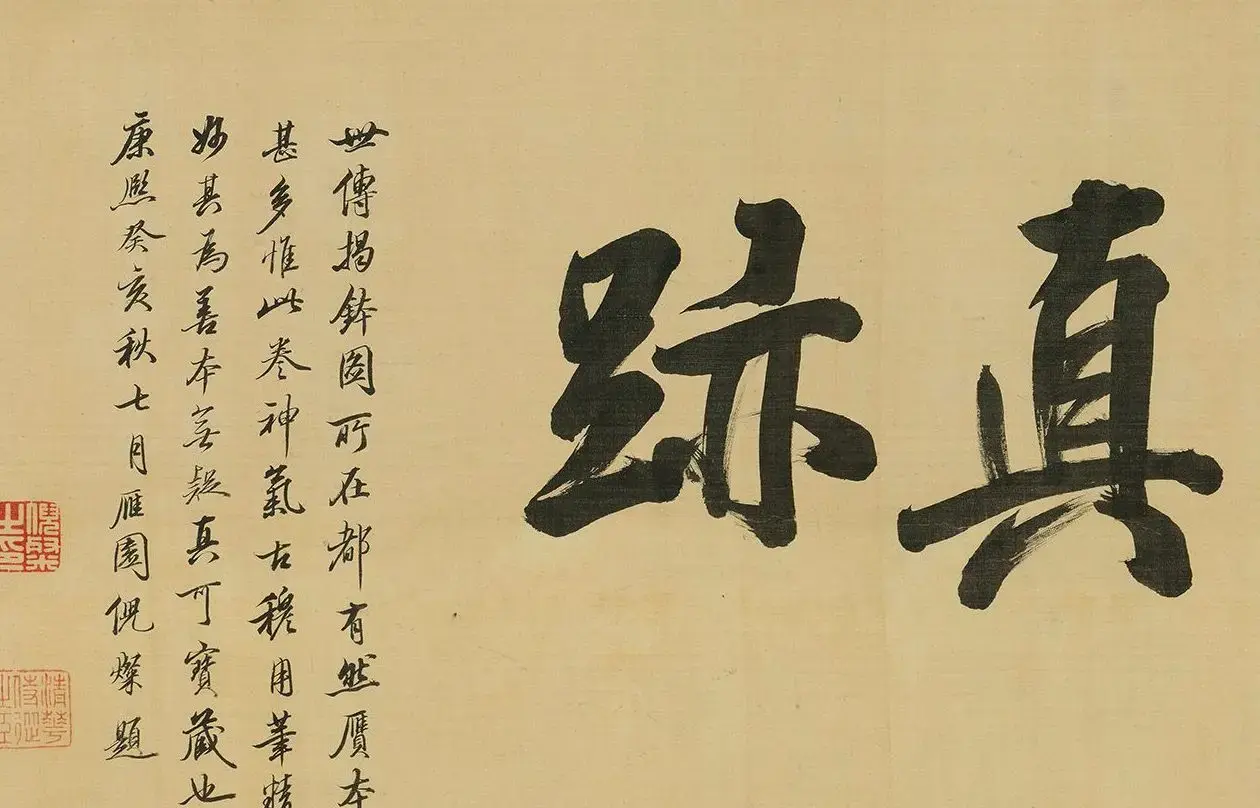 真跡
世傳揭鉢圖所在都有然贗本
甚多惟此卷神氣古穆用筆精
妙其為善本無疑真可寶藏也
康熙癸亥秋七月雁園倪燦題
倪燦之印